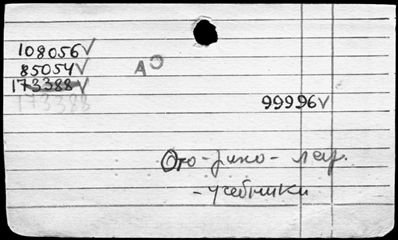 108056✓
85054✓
173388✓
173388
А
99996✓
Ото-рино-лар.
-учебники